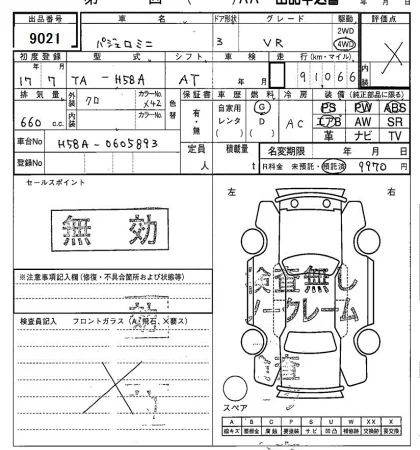 出品番号 車名 ドア形状 グレード 駆動 評価点
9021 パジェロミニ 3 VR 2WD 4WD
初度登録 型式 シフト 車検 走行(km・マイル)
年 月 年 月
17 7 TA-H58A AT 91066
排気量 外装 クロ カラーNo. X42 色替 保証書 車歴 燃料 冷房 装備(純正部品に限る)
内装 カラーNo. 有・無 自家用 レンタ ( ) G D ( ) AC PS PW ABS
660 c.c. エアB AW SR
革 ナビ TV
車台No H58A-0605893 定員 人 積載量 t 名変期限 年 月 日
登録No R料金 未預託・預託済 9970 円
セールスポイント 左 右
無効
※注意事項記入欄(修復・不具合箇所および状態等)
検査無し
ノークレーム
検査員記入 フロントガラス(A:飛石、X要ス)
スペア
A B C P S U W XX X